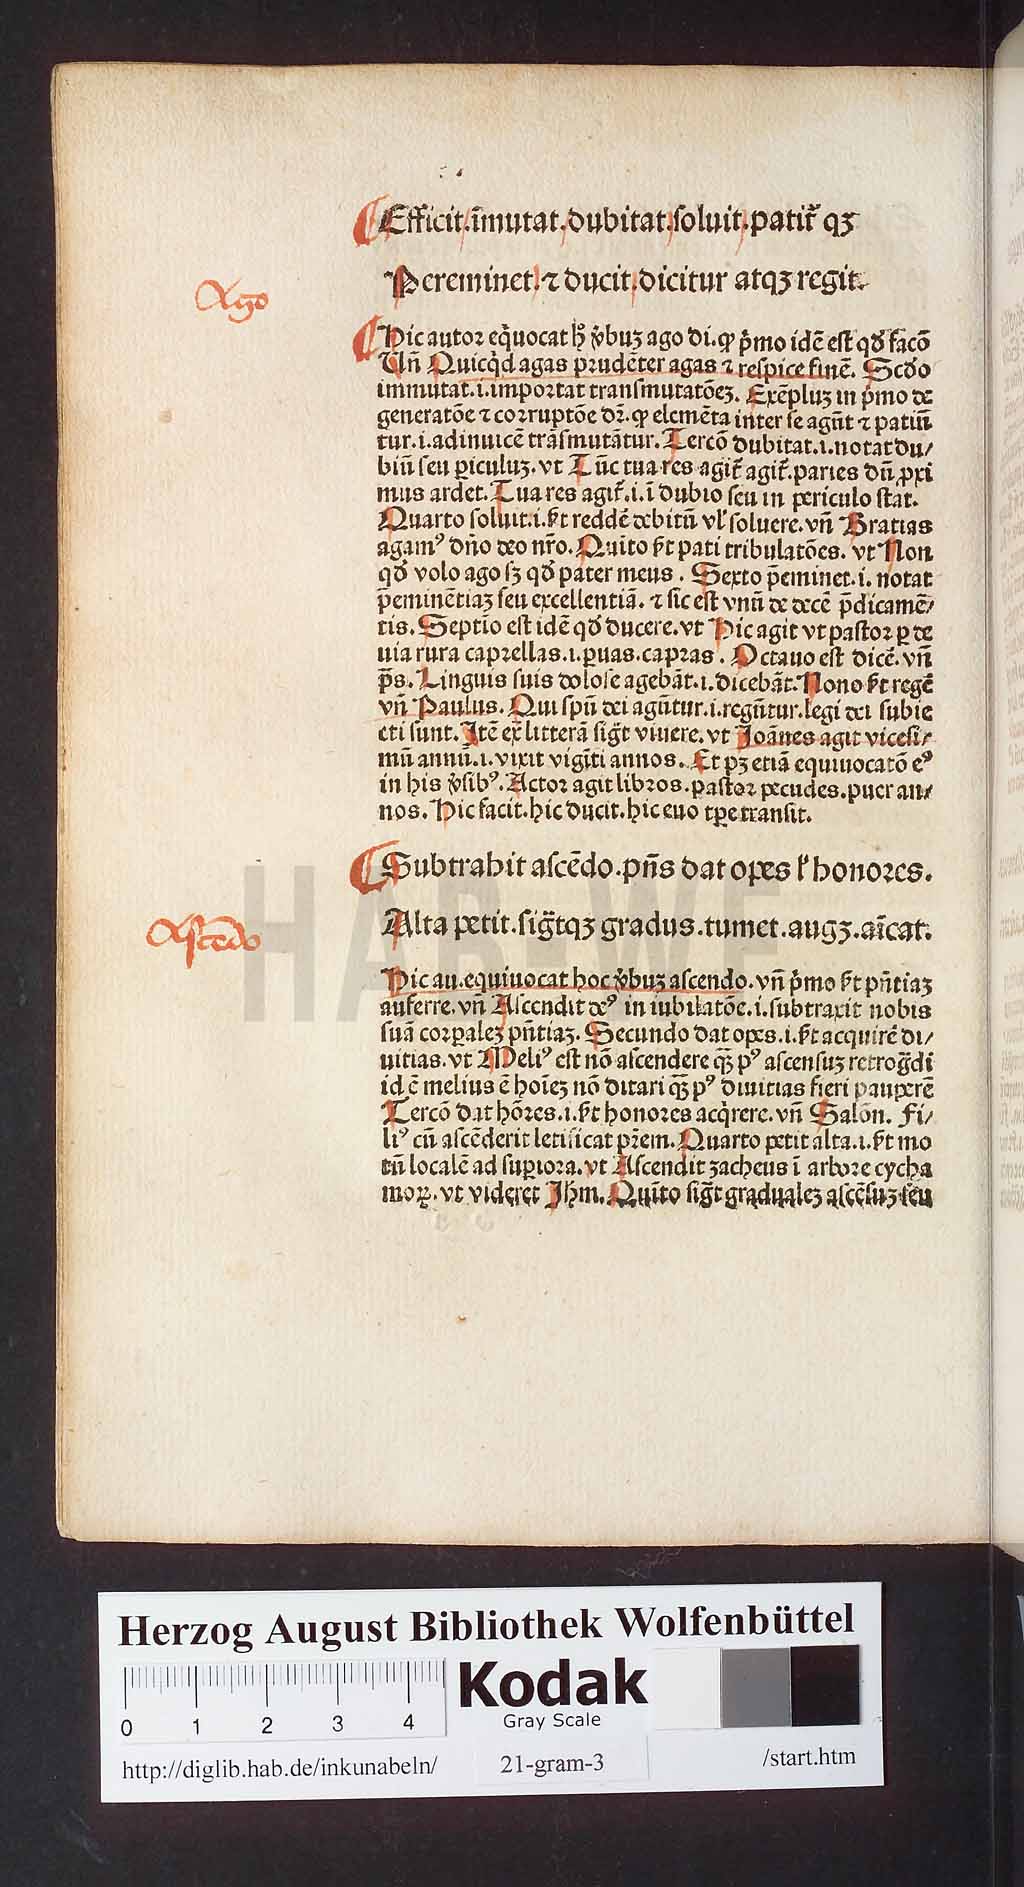 Efficit.īmutat.dubitat.soluit.patit᷑ qꝫ
Ago
Pereminet.⁊ ducit.dicitur atqꝫ regit.
Hic autor eq̇uocat hͦ v̓buꝫ ago di.ꝙ p̓mo idē est qd̓ facō
Un̄ Quicq̇d agas prudēter agas ⁊ respice finē. Scd̓o
immutat.i.importat transmutatōeꝫ. Exēpluꝫ in p̓mo de
generatōe ⁊ corruptōe dr̄.ꝙ elemēta inter se agūt ⁊ patiūt
tur.i.adinuicē trāsmutātur. Tercō dubitat.i.notat du⸗
biū seu piculuꝫ. vt Tūc tua res agit᷑ agit᷑.paries dū ꝓxi
mus ardet. Tua res agit᷑.i.ī dubio seu in periculo stat.
Quarto soluit.i.st reddē debitū vl̓ soluere. vn̄ Gratias
agamꝰ dn̄o deo nr̄o. Quīto st pati tribulatōes. vt Non
qd̓ volo ago sꝫ qd̓ pater meus. Sexto p̄eminet.i. notat
p̄eminētiaꝫ seu excellentiā. ⁊ sic est vnū de decē p̄dicamē⸗
tis. Septio est idē qd̓ ducere. vt Hic agit vt pastor ꝑ de
uia rura caprellas.i.ꝑuas.capras. Octauo est dicē. vn̄
p̄s. Linguis suis dolose agebāt.i.dicebāt. Nono st regē
vn̄ Paulus. Qui spū dei agūtur.i.regūtur.legi dei subie
cti sunt. Itē ex̄ litterā siḡt viuere. vt Joānes agit vicesi⸗
mū annū.i.vixit vigīti annos. Et pꝫ etiā equiuocatō eꝰ
in his v̓sibꝰ. Actor agit libros.pastor pecudes.puer an⸗
nos. Hic facit.hic ducit.hic euo tꝑe transit.
Subtrahit ascēdo.pn̄s dat opes l̓ honores.
Ascēdo
Alta petit.siḡtqꝫ gradus.tumet.augꝫ.aīcat.
Hic au.equiuocat hoc v̓buꝫ ascendo. vn̄ p̓mo st pn̄tiaꝫ
auferre. vn̄ Ascendit deꝰ in iubilatōe.i.subtraxit nobis
suā corꝑaleꝫ pn̄tiaꝫ. Secundo dat opes.i.st acquirē di⸗
uitias. vt Meliꝰ est nō ascendere qꝫ̄ pꝰ ascensuꝫ retrog̃di
id ē melius ē hoīeꝫ nō ditari qꝫ̄ pꝰ diuitias fieri pauperē
Tercō dat hōres.i.st honores acq̇rere. vn̄ Salōn. Fi⸗
liꝰ cū ascēderit letificat pr̄em. Quarto petit alta.i.st mo
tū localē ad suꝑiora. vt Ascendit zacheus ī arbore cycha
moꝝ. vt videret Jhm. Quīto sig̃t gradualeꝫ ascēsuꝫ seu
HAB WF
Herzog August Bibliothek Wolfenbüttel
0 1 2 3 4
Kodak
Gray Scale
http://diglib.hab.de/inkunabeln/
21-gram-3
/start.htm